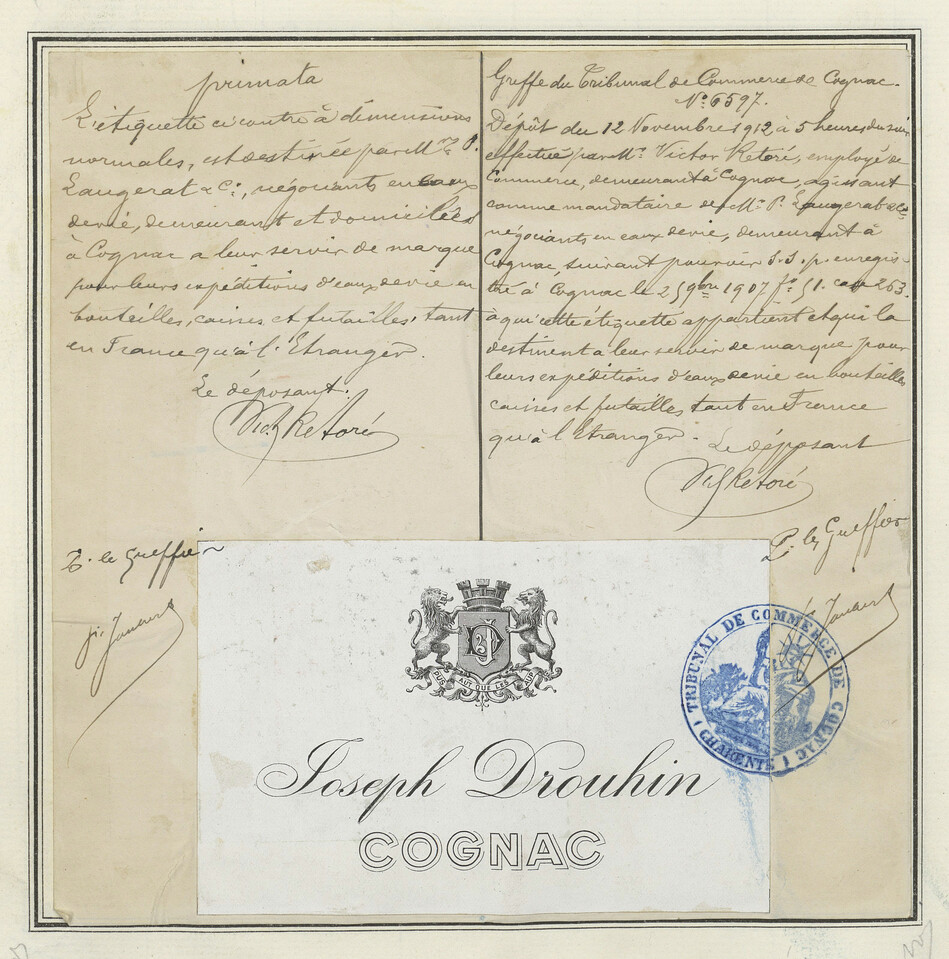 primata
L'étiquette ci contre à dimensions
normales, est destinée par Mrs P.
Laugerat & Cie, négociants en eaux
devie, demeurant et domiciliés
à Cognac a leur servir de marque
pour leurs expéditions d'eaux devie en
bouteilles, caisses et futailles, tant
en France qu'à l'Etranger.
Le déposant:
Vict Retoré
P. le Greffier
Greffe du Tribunal de Commerce de Cognac.
No 6597.
Dépôt du 12 Novembre 1912 à 5 heures du soir
effectué par Mr Victor Retoré, employé de
Commerce, demeurant à Cognac, agissant
comme mandataire de Mrs P. Laugerat & Cie
négociants en eaux devie, demeurant à
Cognac, suivant pouvoir s.s.p. enregis-
tré à Cognac le 25 9bre 1907 fo 51. case 263.
à qui cette étiquette appartient et qui la
destinent a leur servir de marque pour
leurs expéditions d'eaux devie en bouteilles
caisses et futailles tant en France
qu'à l'Etranger.
Le déposant
Vict Retoré
P. le Greffier
PUG AUT QUE LES AUP
TRIBUNAL DE COMMERCE DE COGNAC
(CHARENTE)
Joseph Drouhin
COGNAC